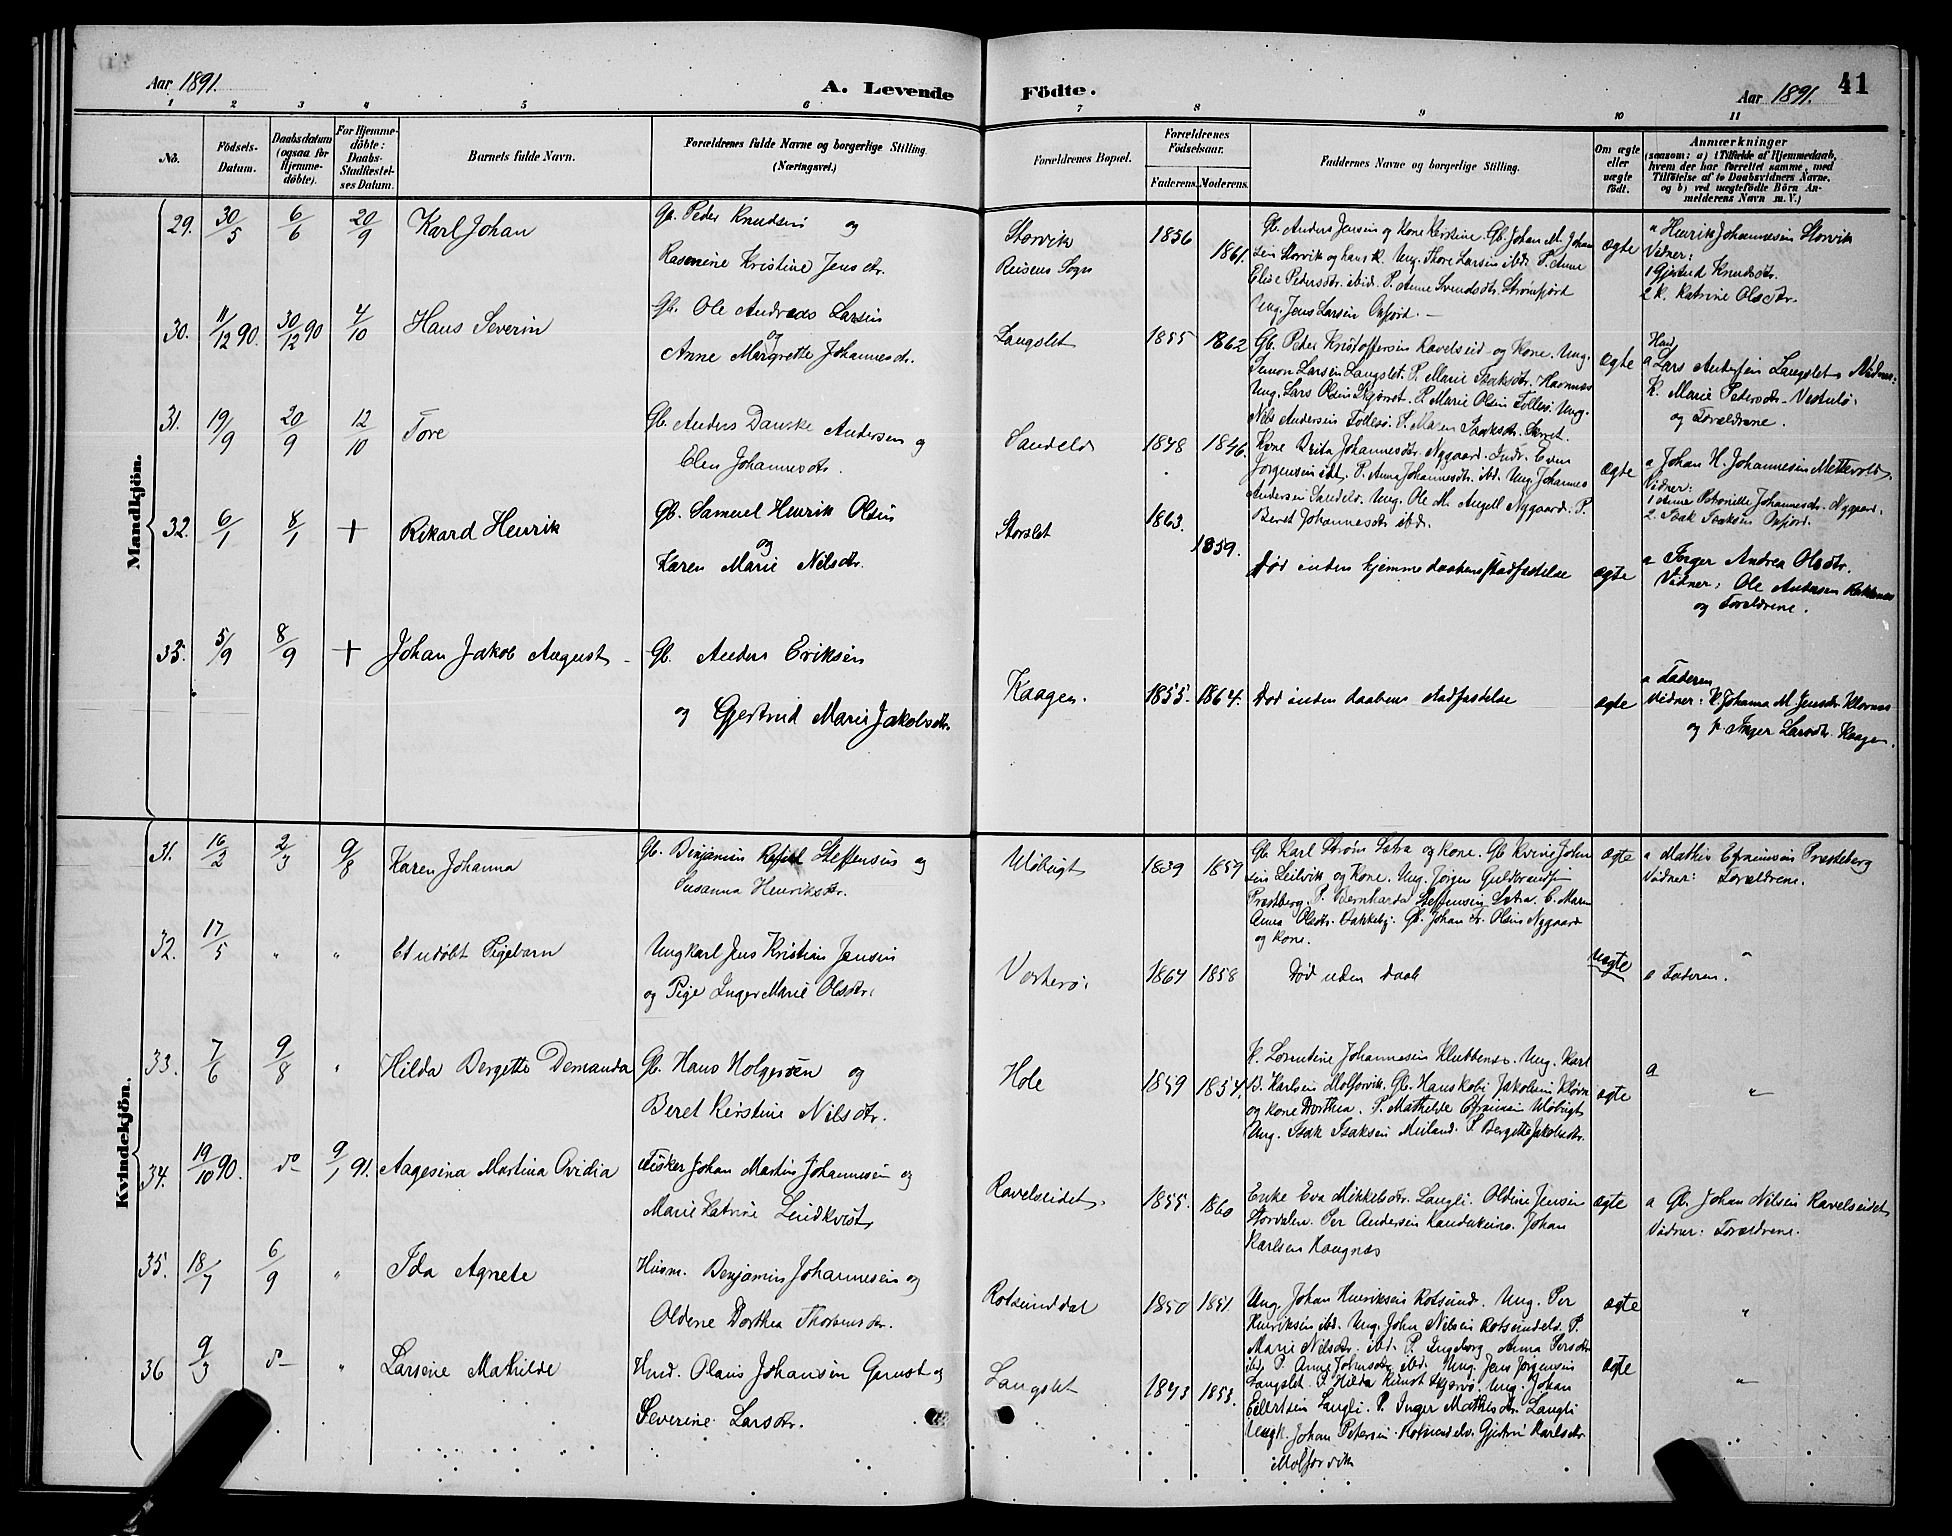 Aar 1891.
A. Levende Födte.
Aar 1891. 41
1 2 3 4 5 6 7 8 9 10 11
No.
Födsels-Datum.
Daabsdatum (ogsaa for Hjemmedöbte).
For Hjemmedöbte: Daabs-Stadfæstelses Datum.
Barnets fulde Navn.
Forældrenes fulde Navne og borgerlige Stilling (Næringsvei.)
Forældrenes Bopæl.
Forældrenes Födselsaar.
Faderens. Moderens.
Faddernes Navne og borgerlige Stilling.
Om ægte eller uægte födt.
Anmærkninger
(saasom: a) i Tilfælde af Hjemmedaab, hvem der har forrettet samme, med Tilföielse af to Daabsvidners Navne, og b) ved uægtefödte Börn Anmelderens Navn m. V.)
Mandkjön.
29. 30/5 6/6 20/9 Karl Johan
Gb. Peder Knudsen og
Rasmine Kristine Jensdtr.
Storvik
Reisens Sogn
1856 1861.
Gb. Anders Jensen og Kone Kerstine. Gb. Johan M. Johan
sen Storvik og hans K. Ung. Thore Larsen ibd. P. Anne
Elise Pedersdtr. ibid. P. Anne Svendsdtr. Strømfjord
Ung. Jens Larsen Oxfjord.
ægte
a Henrik Johannesen Storvik
Vidner:
1 Gjertrud Knudsdtr.
2 K. Katrine Olsdtr.
30. 11/12 90. 30/12 90 4/10 Hans Severin
Gb. Ole Andreas Larsen
og
Anne Margrette Johannesdtr.
Langslet 1855 1862
Gb. Peder Kristoffersen Ravelseid og Kone. Ung.
Simon Larsen Langslet. P. Marie Isaksdtr. Havnnes
Ung. Lars Olsen Skjørvet. P. Marie Olsen Follesö. Ung.
Nils Andersen Follesö. P. Maren Isaksdtr.
ægte
a Lars Andersen Langslet Vidner:
K. Marie Pedersdtr. Vesterö.
og Forældrene.
31. 19/9 20/9 12/10 Tore
Gb. Anders Danske Andersen og
Elen Johannesdtr.
Sandelv 1848 1846.
Kone Brita Johannesdtr. Nygaard. Indr. Even
Jorgensen ibd. P. Anna Johannesdtr. ibd. Ung. Johannes
Andersen Sandelv. Ung. Ole M. Angell Nygaard. P.
Beret Johannesdtr ibd.
ægte
a Johan H. Johannesen Mettevold
Vidner:
1 Anne Petronille Johannesdtr. Nygaard.
2. Isak Isaksen Oxfjord.
32. 6/1 8/1 + Rikard Henrik
Gb. Samuel Henrik Olsen
og
Karen Marie Nilsdtr.
Storslet 1863. 1859.
Död inden hjemmedaabens stadfæstelse
ægte
a Inger Andrea Olsdtr.
Vidner: Ole Andersen
og Forældrene.
33. 5/9 8/9 + Johan Jakob August
Gb. Anders Eriksen
og Gjertrud Marie Jakobsdtr.
Kaagen. 1855. 1864.
Död inden daabens stadfæstelse
ægte
a Faderen
Vidner: K. Johanna M. Jensdtr. Klovnes
og K. Inger Larsdtr. Kaagen.
Kvindekjön.
31. 16/2 2/3 9/8 Karen Johanna
Gb. Benjamin Rafael Steffensen og
Susanna Henriksdtr.
Uløbugt 1839 1859
Gb. Karl Strøm Sætra og Kone. Gb. Kvine John
sen Leilvik og Kone. Ung. Jörgen Guldbrandsen
Præstberg. P. Bernharda Steffensen Sætra. E. Maren
Anna Olsdtr. Bakkeby. Gb. Johan Fr. Olsen Nygaard
og Kone.
ægte
a Mathis Efraimsen Præsteberg
Vidner: Forældrene.
32. 17/5 " " Et udöbt Pigebarn
Ungkarl Jens Kristian Jensen
og Pige Inger Marie Olsdtr.
Vorterö. 1864 1858
Död uden daab
uægte
"
a Faderen.
33. 7/6 9/8 " Hilda Bergette Demanda
Gb. Hans Holgersen og
Beret Kerstine Nilsdtr.
Hole 1859 1854.
K. Lorentine Johannesen Klubbenes. Ung. Karl
B. Karlsen Molforvik. Gb. Hans Kobj Jakobsen Kløvn
og Kone Dorthea. P. Mathilde Efraimsen Uløbugt
Ung. Isak Isaksen Meiland. P. Bergette Jakobsdtr.
ægte
a
"
34. 19/10 90. do 9/1 91. Aagesina Martina Ovidia
Fisker Johan Martin Johannesen og
Marie Katrine Lindkvist
Ravelseidet. 1855. 1860
Enke Eva Mikkelsdtr. Langli. Oldine Jensen
Storvolen. Per Andersen Kautokeino. Johan
Karlsen Kaagnæs
ægte
a Gb. Johan Nilsen Ravelseidet
Vidner: Forældrene.
35. 18/7 6/9 " Ida Agnete
Husm. Benjamin Johannesen og
Oldene Dorthea Thorbensdtr.
Rotsunddal 1850 1851.
Ung. Johan Henriksen Rotsund. Ung. Per
Henriksen ibd. Ung. John Nilsen Rotsundelv. P.
Marie Nilsdtr. ibd. P. Ingeborg Anna Persdtr
ibd. P. Anne Johnsdtr. ibd.
ægte
"
36 9/3 do " Larsine Mathilde
Hmd. Olaus Johansen Garnst og
Severine Larsdtr.
Langslet 1843 1853.
Ung. Jens Jorgensen
Langslet. P. Hilda Kunst Skjervö. Ung. Johan
Eilertsen Langli. P. Inger Mathisdtr. Langli
Ungk. Johan Petersen Rotsundelv. Gjertrud Karlsdtr.
Molforvik
ægte
"